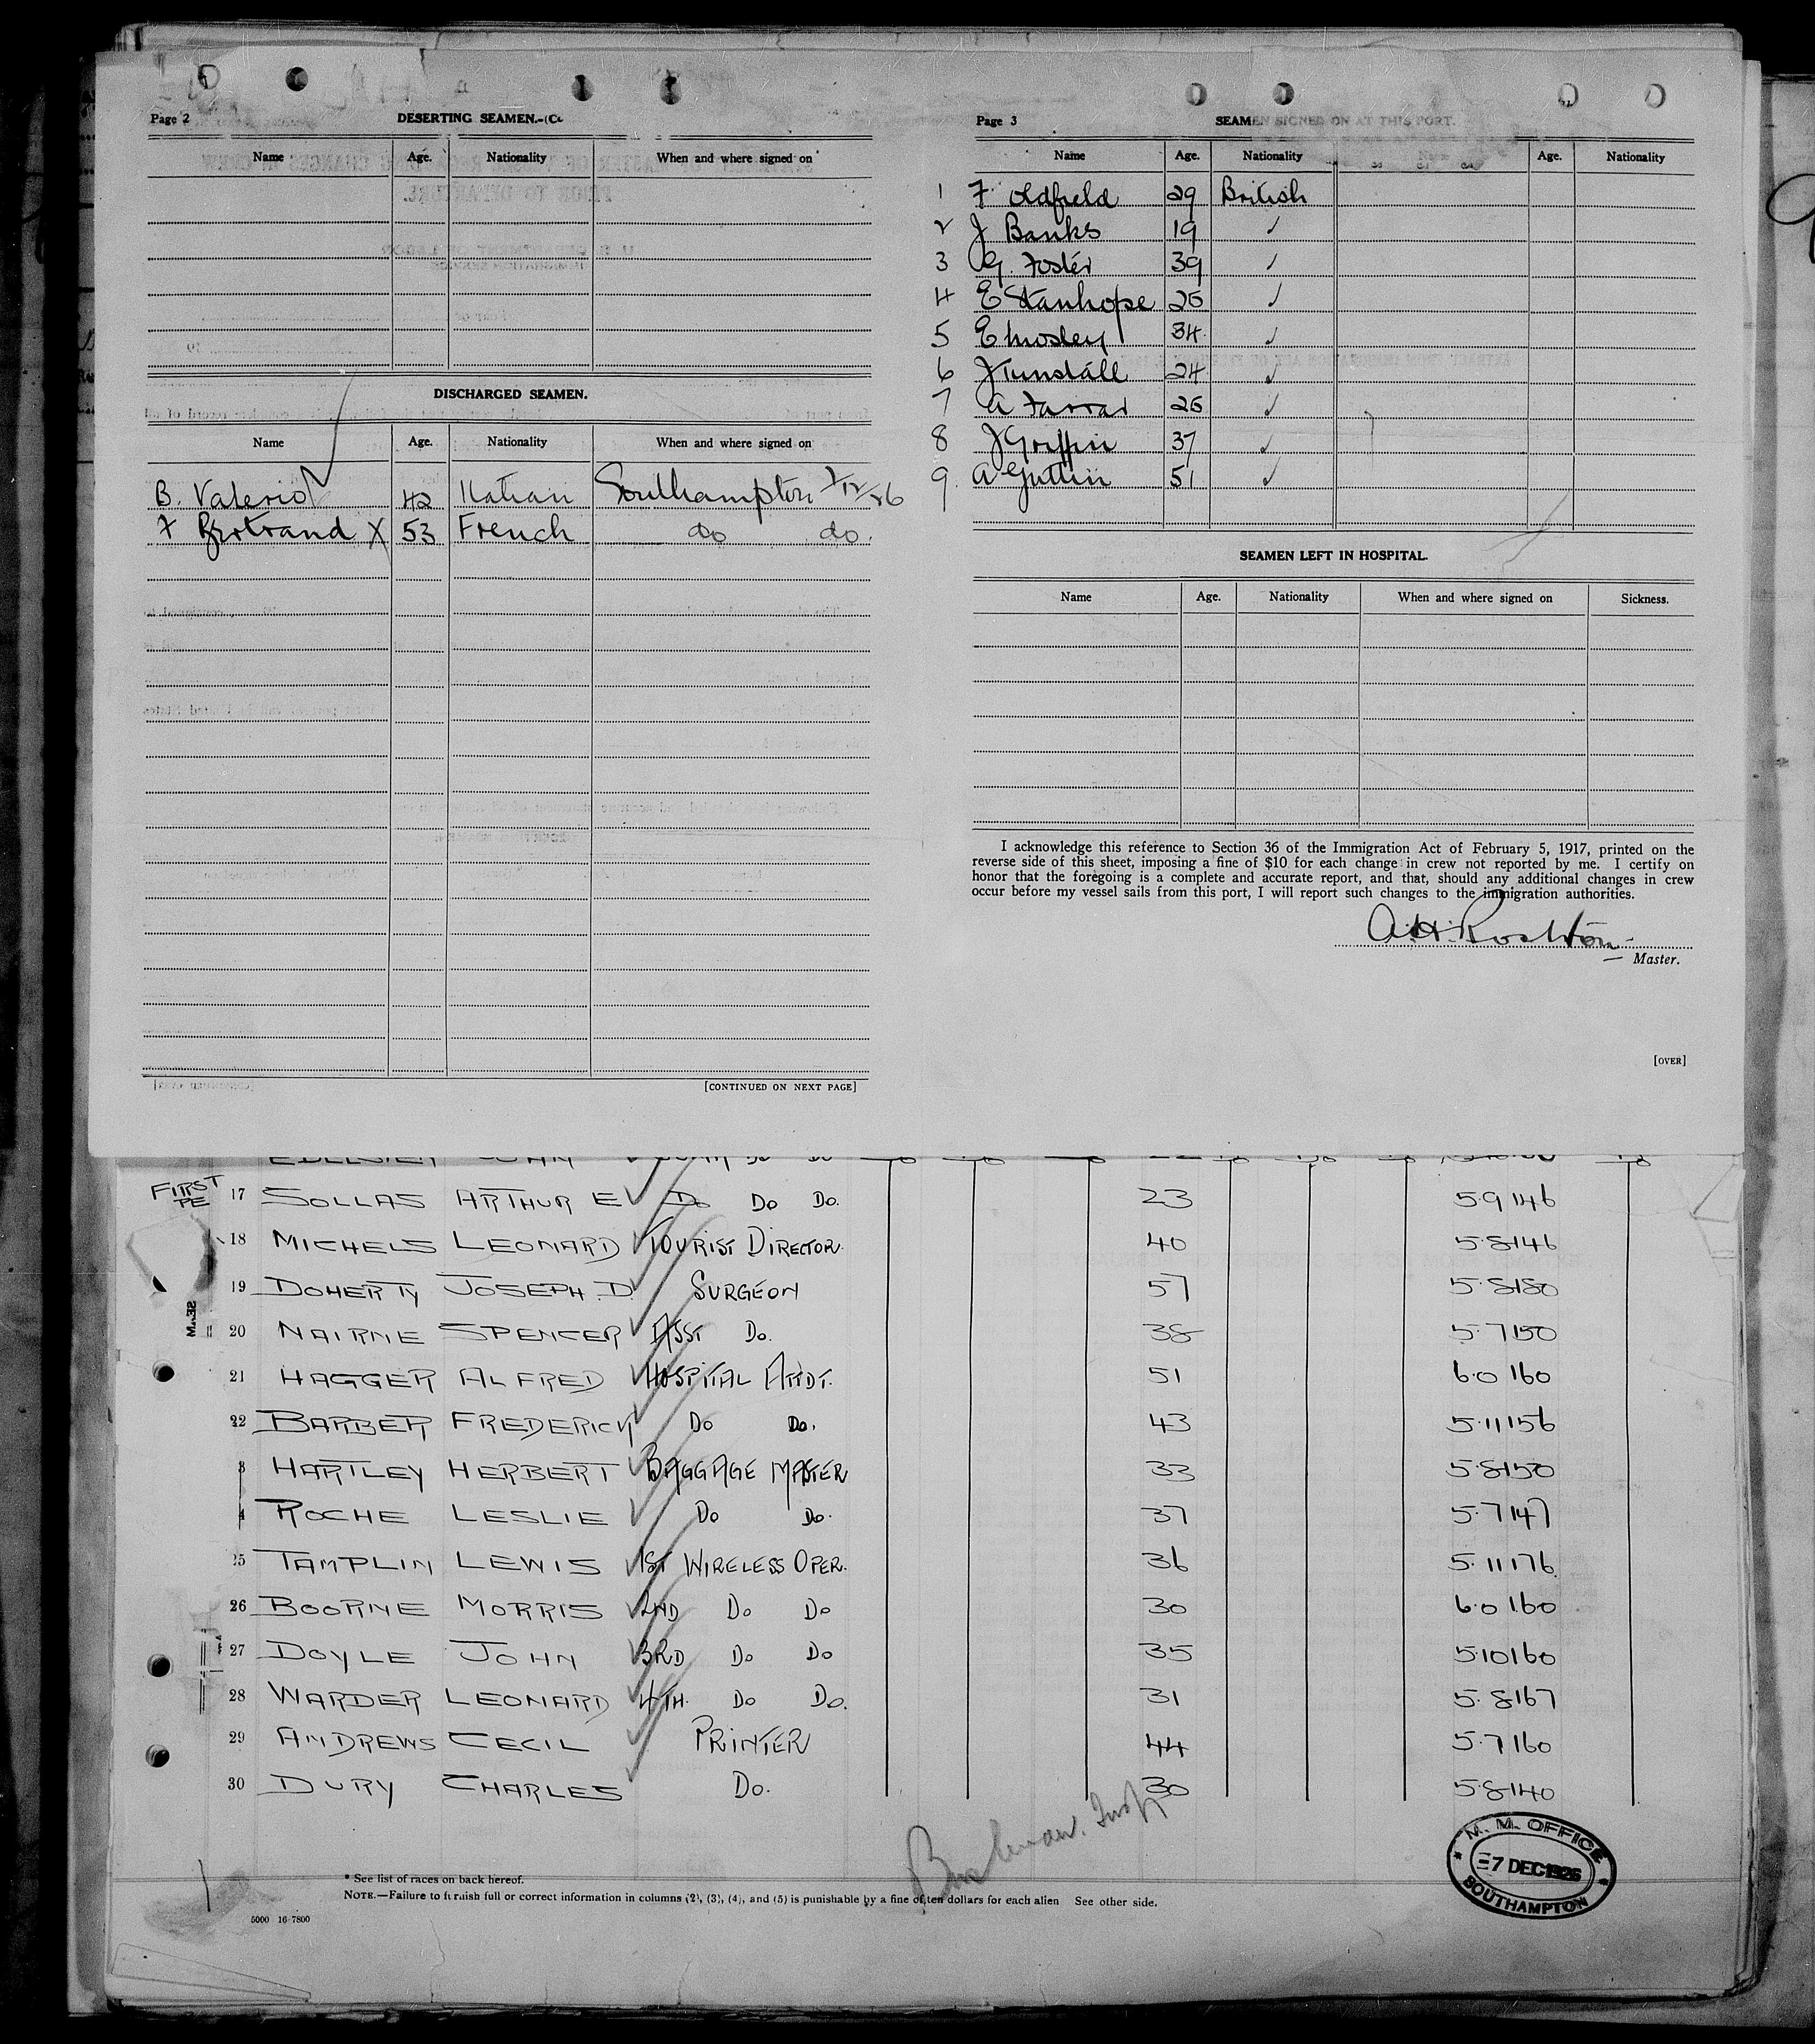 Page 2
DESERTING SEAMEN.
Name Age. Nationality When and where signed on
DISCHARGED SEAMEN.
Name Age. Nationality When and where signed on
B. Valerio 42 Italian Southampton 7/12/26
F Bertrand X 53 French do do.
[CONTINUED ON NEXT PAGE]
Page 3
SEAMEN SIGNED ON AT THIS PORT.
Name Age. Nationality Name Age. Nationality
1 F Oldfield 29 British
2 J Banks 19 ✓
3 G. Foster 39 ✓
4 E Stanhope 25 ✓
5 E Mosley 34 ✓
6 J Tunstall 24 ✓
7 A Farrar 25 ✓
8 J Griffin 37 ✓
9. A 51 ✓
SEAMEN LEFT IN HOSPITAL.
Name Age. Nationality When and where signed on Sickness.
I acknowledge this reference to Section 36 of the Immigration Act of February 5, 1917, printed on the
reverse side of this sheet, imposing a fine of $10 for each change in crew not reported by me. I certify on
honor that the foregoing is a complete and accurate report, and that, should any additional changes in crew
occur before my vessel sails from this port, I will report such changes to the immigration authorities.
A. H. Rostron
Master.
[OVER]
FIRST 17 SOLLAS ARTHUR E Do Do Do. 23 5.9 146
18 MICHELS LEONARD TOURIST DIRECTOR. 40 5.8 146
19 DOHERTY JOSEPH. D. SURGEON 57 5.8 180
20 NAIRNE SPENCER ASST Do. 38 5.7 150
21 HAGGER ALFRED HOSPITAL ATTDT. 51 6.0 160
22 BARBER FREDERICK Do Do. 43 5.11 156
3 HARTLEY HERBERT BAGGAGE MASTER 33 5.8 150
4 ROCHE LESLIE Do Do. 37 5.7 147
25 TAMPLIN LEWIS 1ST WIRELESS OPER. 36 5.11 176
26 BOORNE MORRIS 2ND Do Do 30 6.0 160
27 DOYLE JOHN 3RD Do Do 35 5.10 160
28 WARDER LEONARD 4TH. Do Do. 31 5.8 167
29 ANDREWS CECIL PRINTER 44 5.7 160
30 DURY CHARLES Do. 30 5.8 140
M. M. OFFICE
7 DEC 1926
SOUTHAMPTON
* See list of races on back hereof.
NOTE.—Failure to furnish full or correct information in columns (2), (3), (4), and (5) is punishable by a fine of ten dollars for each alien See other side.
5000 16-7800